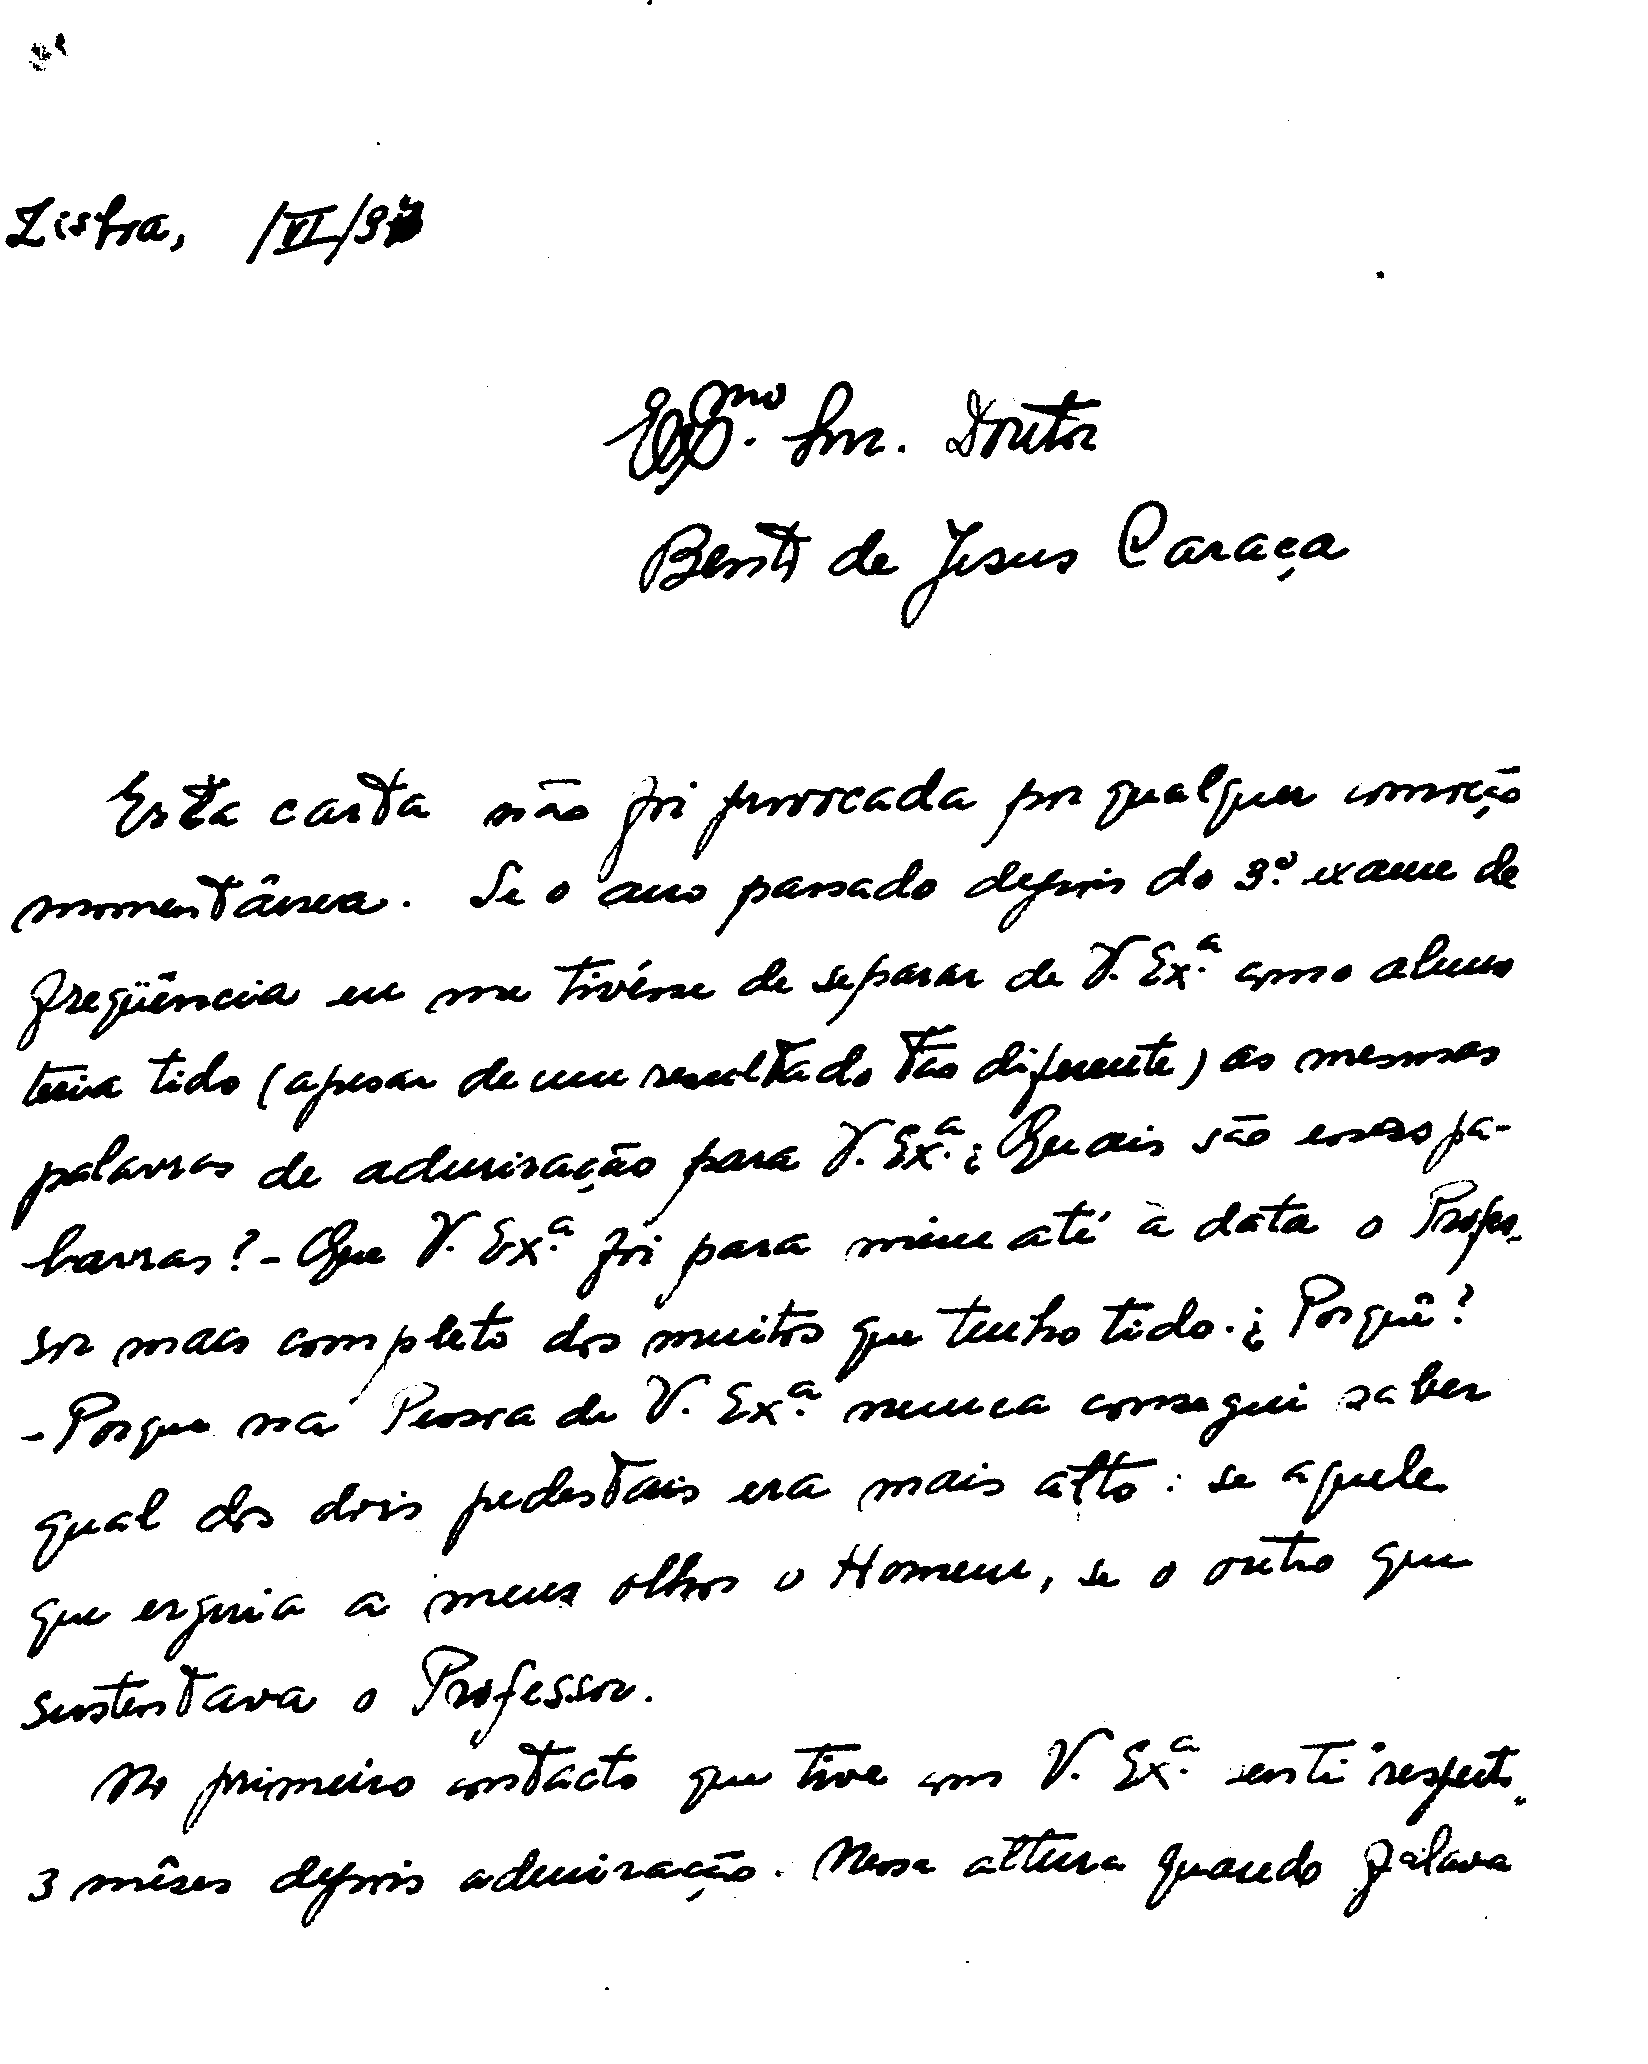 Lisboa, /VI/9
Ex.mo Snr. Doutor
Bento de Jesus Caraça
Esta carta não foi provocada por qualquer comoção
momentânea. Se o ano passado depois do 3.º exame de
freqüência eu me tivésse de separar de V. Ex.ª como aluno
teria tido (apesar de um resultado tão diferente) as mesmas
palavras de admiração para V. Ex.ª ¿ Quais são essas pa-
lavras? - Que V. Ex.ª foi para mim até à data o Profes-
sor mais completo dos muitos que tenho tido. ¿ Porquê?
- Porque na Pessoa de V. Ex.ª nunca consegui saber
qual dos dois pedestais era mais alto: se aquele
que erguia a meus olhos o Homem, se o outro que
sustentava o Professor.
No primeiro contacto que tive com V. Ex.ª senti respeito.
3 mêses depois admiração. Nessa altura quando falava